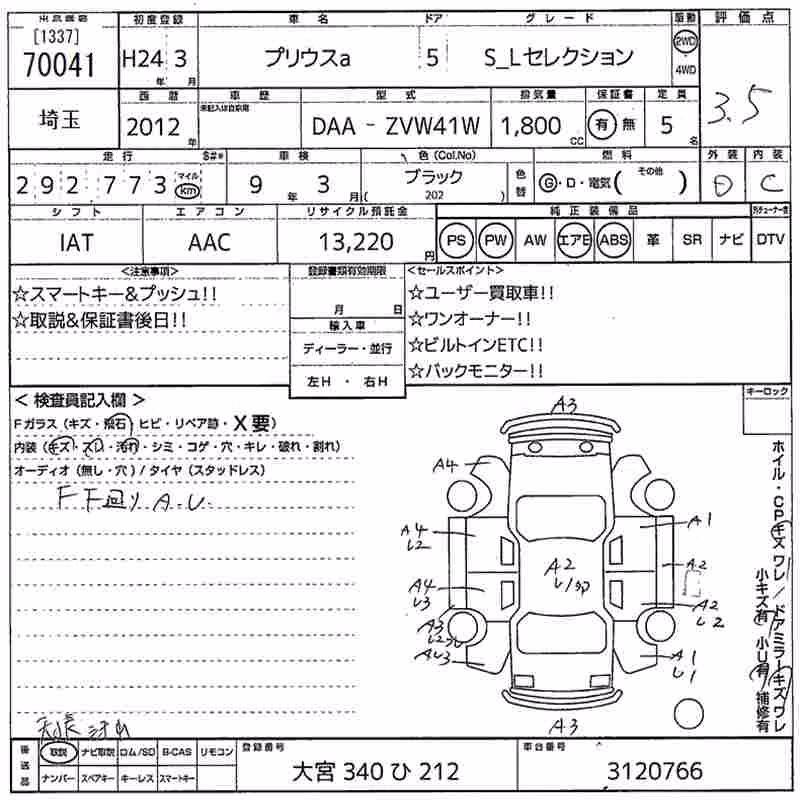 [1337]
70041
初度登録
H24年 3月
車名
プリウスa
ドア
5
グレード
S_Lセレクション
駆動
2WD
4WD
評価点
3.5
埼玉
西暦
2012年
車歴
型式
DAA - ZVW41W
排気量
1,800cc
保証書
有 無
定員
5名
走行
292,773
マイル
km
S#*
車検
9年 3月
色(Col.No)
ブラック
( 202 )
色替
燃料
G・D・電気( その他 )
外装
D
内装
C
シフト
IAT
エアコン
AAC
リサイクル預託金
13,220円
純正装備品
PS PW AW エアB ABS 革 SR ナビ
DTV
<注意事項>
☆スマートキー&プッシュ!!
☆取説&保証書後日!!
登録書類有効期限
月 日
輸入車
ディーラー・並行
左H・右H
<セールスポイント>
☆ユーザー買取車!!
☆ワンオーナー!!
☆ビルトインETC!!
☆バックモニター!!
<検査員記入欄>
Fガラス(キズ・飛石・ヒビ・リペア跡・X要)
内装(キズ・スレ・汚れ・シミ・コゲ・穴・キレ・破れ・割れ)
オーディオ(無し・穴)/タイヤ(スタッドレス)
FF回り A.U.
キーロック
A3
A4
A4
L2
A1
A2
A2
A4
L3
A2
L2
A3
A1
L1
A3
ホイル・CPキズ ワレ/ドアミラーキズ ワレ
小キズ有 小U有 補修有
後送品
取説 ナビ取説 ロム/SD B-CAS リモコン
ナンバー スペアキー キーレス スマートキー
登録番号
大宮 340 ひ 212
車台番号
3120766